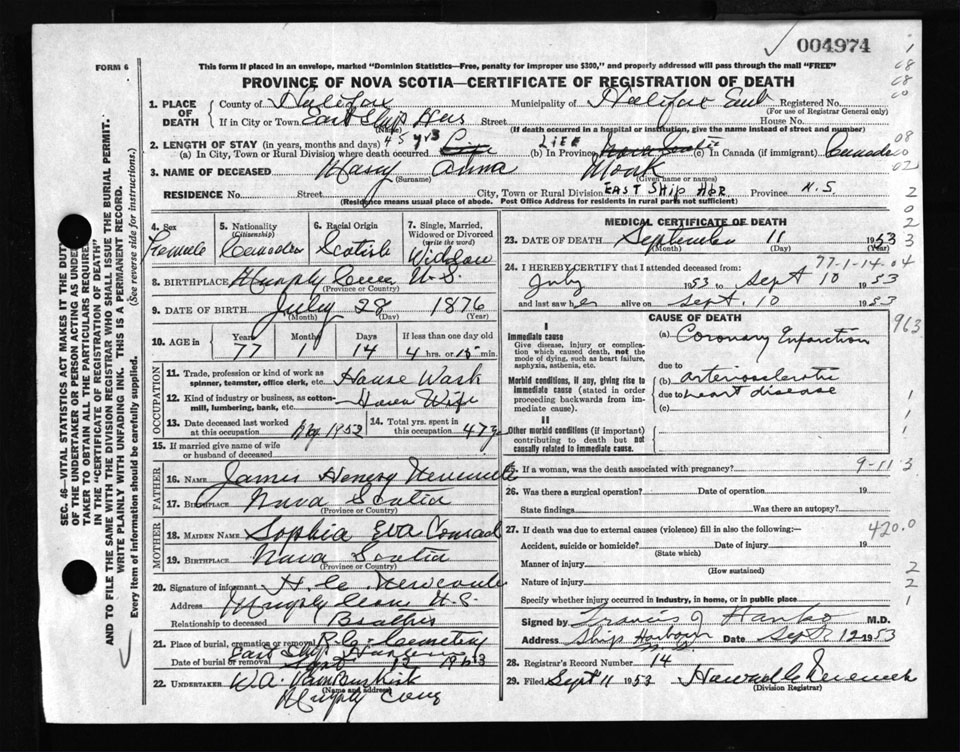 004974
FORM 6
This form if placed in an envelope, marked "Dominion Statistics—Free, penalty for improper use $300," and property addressed will pass through the mail "FREE"
PROVINCE OF NOVA SCOTIA—CERTIFICATE OF REGISTRATION OF DEATH
1. PLACE OF DEATH County of Halifax Municipality of Halifax East Registered No.
(For use of Registrar General only)
If in City or Town East Ship Hbr Street House No.
(Name) (If death occurred in a hospital or institution, give the name instead of street and number)
2. LENGTH OF STAY (in years, months and days)
(a) In City, Town or Rural Division where death occurred 45 yrs (b) In Province LIFE Nova Scotia (c) In Canada (if immigrant) Canada
3. NAME OF DECEASED Mary Anna Monk
(Surname) (Given name or names)
RESIDENCE No. Street City, Town or Rural Division EAST SHIP HBR Province N.S.
(Residence means usual place of abode. Post Office Address for residents in rural parts not sufficient)
4. Sex Female
5. Nationality (Citizenship) Canadian
6. Racial Origin Scotish
7. Single, Married, Widowed or Divorced (write the word) Widow
8. BIRTHPLACE Murphy Cove N.S.
(Province or Country)
9. DATE OF BIRTH July 28 1876
(Month) (Day) (Year)
10. AGE in Years Months Days If less than one day old
77 1 14 4 hrs. or 15 min.
OCCUPATION
11. Trade, profession or kind of work as spinner, teamster, office clerk, etc. House Work
12. Kind of industry or business, as cotton-mill, lumbering, bank, etc. House Wife
13. Date deceased last worked at this occupation 1952
14. Total yrs. spent in this occupation 47 y
15. If married give name of wife or husband of deceased
FATHER
16. NAME James Henry
17. BIRTHPLACE Nova Scotia
MOTHER
18. MAIDEN NAME Sophia Eva Conrad
19. BIRTHPLACE Nova Scotia
20. Signature of informant H. C.
Address Murphy Cove N.S.
Relationship to deceased Brother
21. Place of burial, cremation or removal Cemetery
East Ship Harbour
Date of burial or removal Sept 13 1953
22. UNDERTAKER W.A. VanBuskirk
(Name and address)
Murphy Cove
MEDICAL CERTIFICATE OF DEATH
23. DATE OF DEATH September 11 1953
(Month) (Day) (Year)
77-1-14-04
24. I HEREBY CERTIFY that I attended deceased from:
July 1953 to Sept 10 1953
and last saw her alive on Sept. 10 1953
CAUSE OF DEATH
I
Immediate cause
Give disease, injury or complication which caused death, not the mode of dying, such as heart failure, asphyxia, asthenia, etc.
(a) Coronary Infarction
due to
Morbid conditions, if any, giving rise to immediate cause (stated in order proceeding backwards from immediate cause).
(b) arteriosclerotic
due to heart disease
(c)
II
Other morbid conditions (if important) contributing to death but not causally related to immediate cause.
963
1
25. If a woman, was the death associated with pregnancy?
9-11 3
26. Was there a surgical operation? Date of operation 19
State findings Was there an autopsy?
27. If death was due to external causes (violence) fill in also the following:—
420.0
Accident, suicide or homicide? Date of injury 19
(State which)
Manner of injury
(How sustained)
Nature of injury
Specify whether injury occurred in industry, in home, or in public place
2
2
1
Signed by Francis J M.D.
Address Ship Harbour Date Sept 12 1953
28. Registrar's Record Number 14
29. Filed Sept 11 1953 Howard C
(Division Registrar)
SEC. 46—VITAL STATISTICS ACT MAKES IT THE DUTY
OF THE UNDERTAKER OR PERSON ACTING AS UNDER-
TAKER TO OBTAIN ALL THE PARTICULARS REQUIRED
IN THE "CERTIFICATE OF REGISTRATION OF DEATH"
AND TO FILE THE SAME WITH THE DIVISION REGISTRAR WHO SHALL ISSUE THE BURIAL PERMIT.
WRITE PLAINLY WITH UNFADING INK. THIS IS A PERMANENT RECORD.
Every item of information should be carefully supplied. (See reverse side for instructions.)